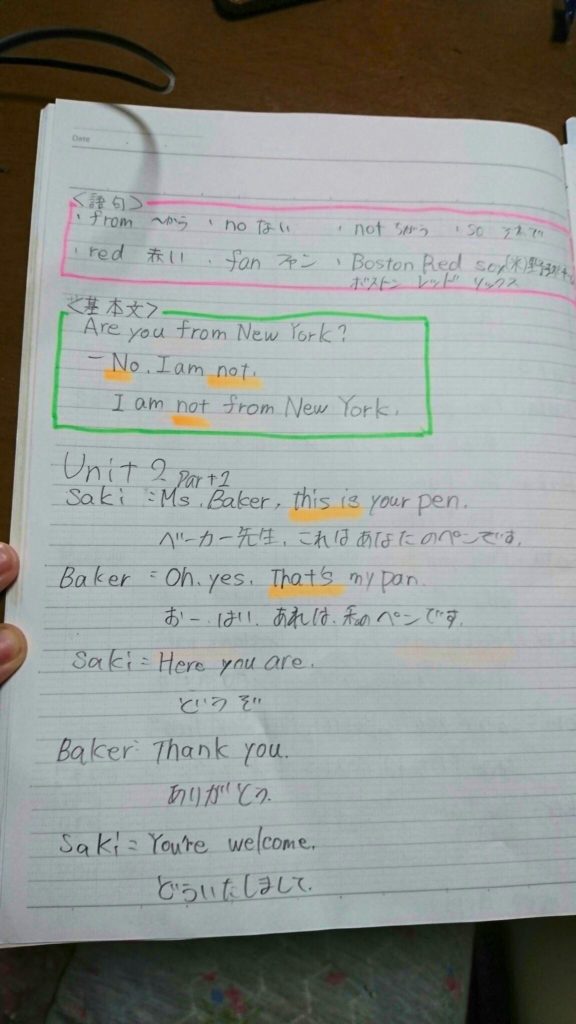 Date
<語句>
・from 〜から ・no ない ・not ちがう ・so それで
・red 赤い ・fan ファン ・Boston Red sox(米)野球チーム
ボストン レッド ソックス
<基本文>
Are you from New York?
- No, I am not.
I am not from New York.
Unit 2 Part 1
Saki = Ms. Baker, this is your pen.
ベーカー先生、これはあなたのペンです。
Baker = Oh, yes. That's my pan.
おー、はい、あれは、私のペンです。
Saki = Here you are.
どうぞ
Baker: Thank you.
ありがとう。
Saki = You're welcome.
どういたしまして。